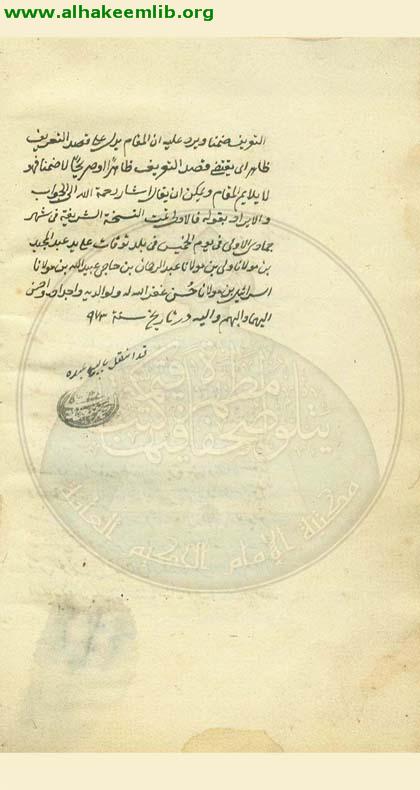 www.alhakeemlib.org
التعريف ضمنا ويرد عليه ان المقام يدل على قصد التعريف
ظاهرا اى يقتضى قصد التعريف ظاهرا او صريحا لا ضمنا فهو
لا يلايم المقام ويمكن ان يقال اشار رحمة الله الى الجواب
والايراد بقوله فالاولى تمت النسخة الشريفة فى شهر
جمادى الاولى فى يوم الخميس فى بلد توقات على يد عبد المجيد
بن مولانا ولى بن مولانا عبد الرحمان بن حاجى عبيد الله بن مولانا
اسرائيل بن مولانا حسن غفر الله له ولوالديه واجداده واحسن
اليهما واليهم واليه در تاريخ سنة ٩٧٣
قد انتقل
مكتبة الإمام الحكيم العامة